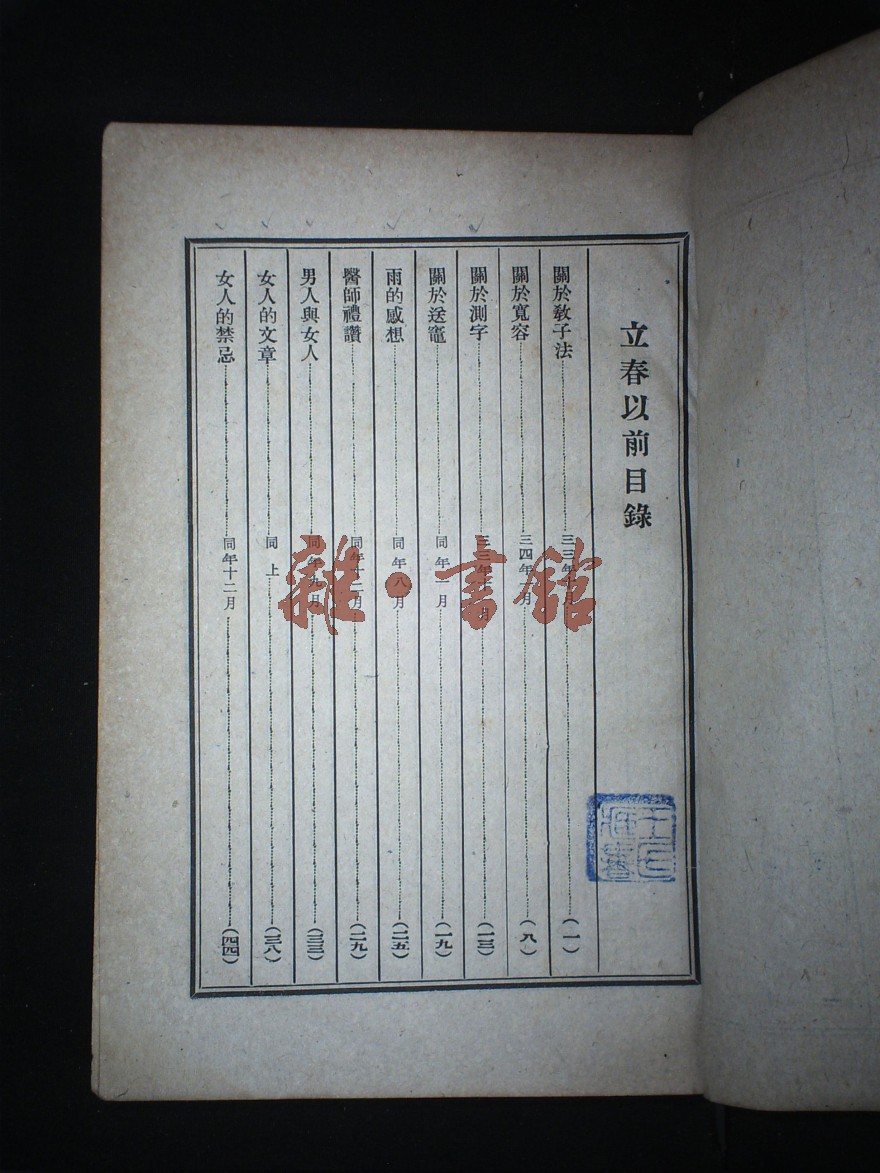 立春以前目錄
關於教子法 三三年十月 (一)
關於寬容 三四年一月 (八)
關於測字 三三年十一月 (一三)
關於送竈 同年一月 (一九)
雨的感想 同年八月 (二五)
醫師禮讚 同年十二月 (二九)
男人與女人 同年九月 (三三)
女人的文章 同上 (三八)
女人的禁忌 同年十二月 (四四)
雜·書館